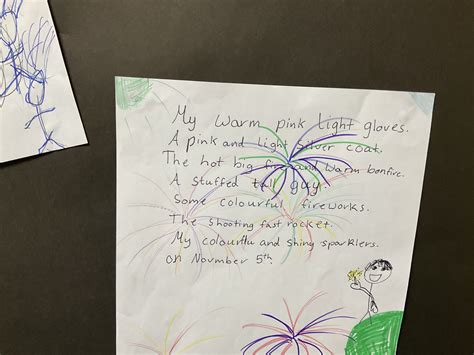 My warm pink light gloves.
A pink and light silver coat.
The hot big fire and warm bonfire.
A stuffed tall guy.
Some colourful fireworks.
The shooting fast rocket.
My colourflu and shing sparklers.
on Novumber 5th.